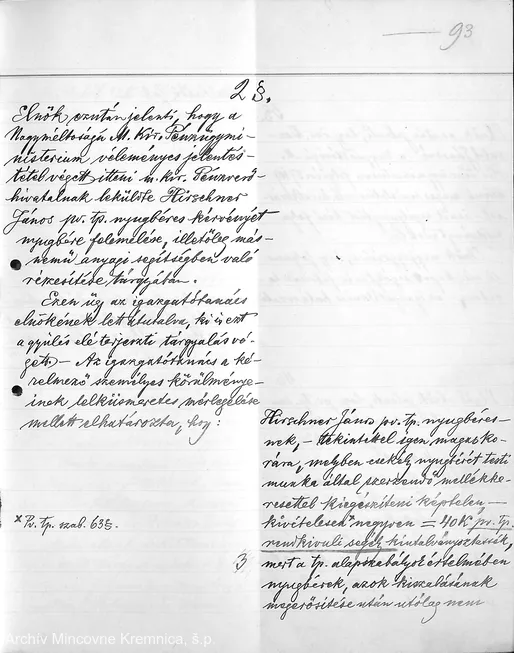 93
2 §.
Elnök ezután jelenti, hogy a
Nagyméltóságú M. Kir. Pénzügymi-
nisterium véleményes jelentés-
tétel végett itteni m. kir. Pénzverő-
hivatalnak leküldte Hirschner
János pv. tp. nyugbéres kérvényét
nyugbére felemelése, illetőleg más-
nemű anyagi segítségben való
részesítése tárgyában.
Ezen ügy az igazgatótanács
elnökének lett átutalva, ki is ezt
a gyűlés elé terjeszti tárgyalás vé-
gett. – Az igazgatótanács a ké-
relmező személyes körülménye-
inek lelkiismeretes mérlegelése
mellett elhatározta, hogy:
Hirschner János pv. tp. nyugbéres-
nek, – tekintettel igen magas ko-
rára, melyben csekély nyugbérét testi
munka által szerzendő mellékke-
resettel kiegészíteni képtelen, –
kivételesen negyven = 40 K pv. tp.
rendkívüli segély kiutalványoztassék,
mert a tp. alapszabályok értelmében
nyugbérek, azok kiszabásának
megerősítése után utólag nem
x Pv. tp. szab. 63 §.
3
Archív Mincovne Kremnica, š.p.